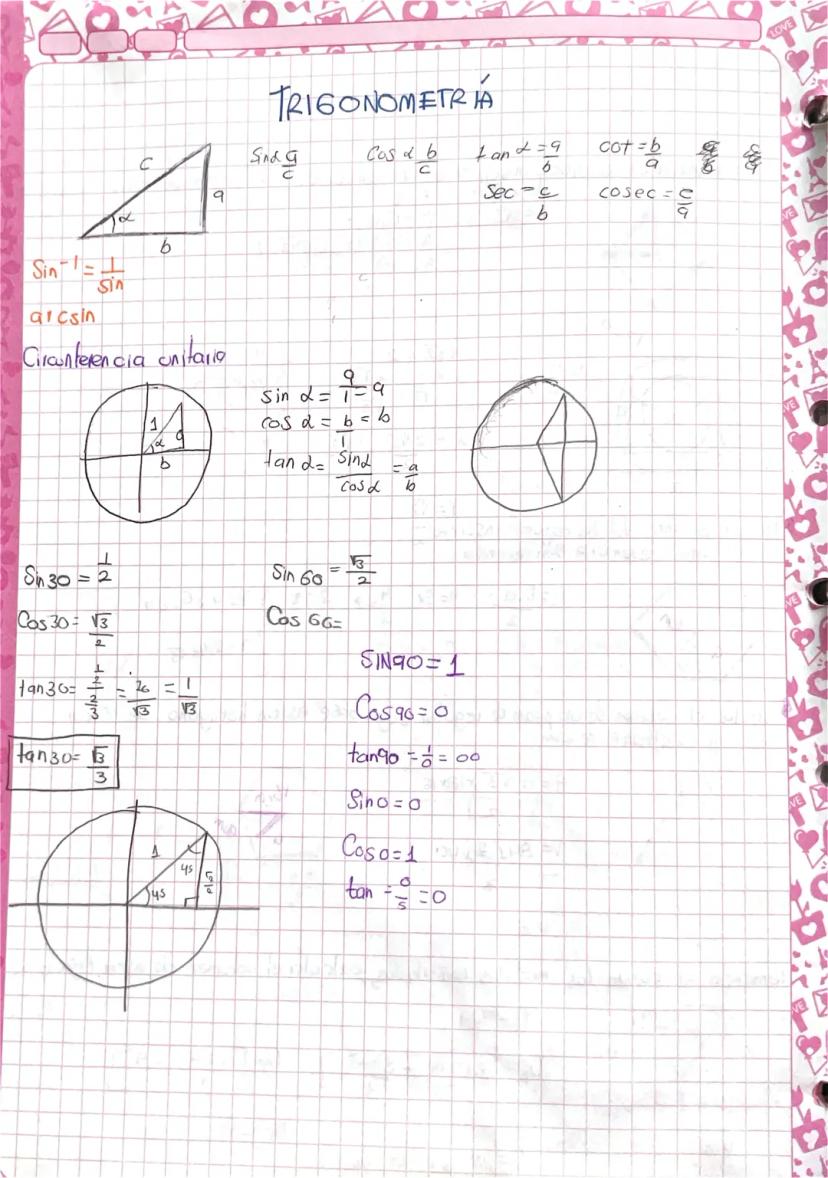 TRIGONOMETRÍA
c
α
a
b
Sin α a/c
Cos α b/c
tan α = a/b
cot = b/a
Sec = c/b
cosec = c/a
Sin⁻¹ = 1/sin
arcsin
Circunferencia unitaria
1
α
a
b
sin α = a/1 = a
cos α = b/1 = b
tan α = sin α/cos α = a/b
Sin 30 = 1/2
Sin 60 = √3/2
Cos 30 = √3/2
Cos 60 =
SIN 90 = 1
Cos 90 = 0
tan 90 = 1/0 = ∞
Sin 0 = 0
Cos 0 = 1
tan 30 = √3/3
1
45
45
LOVE